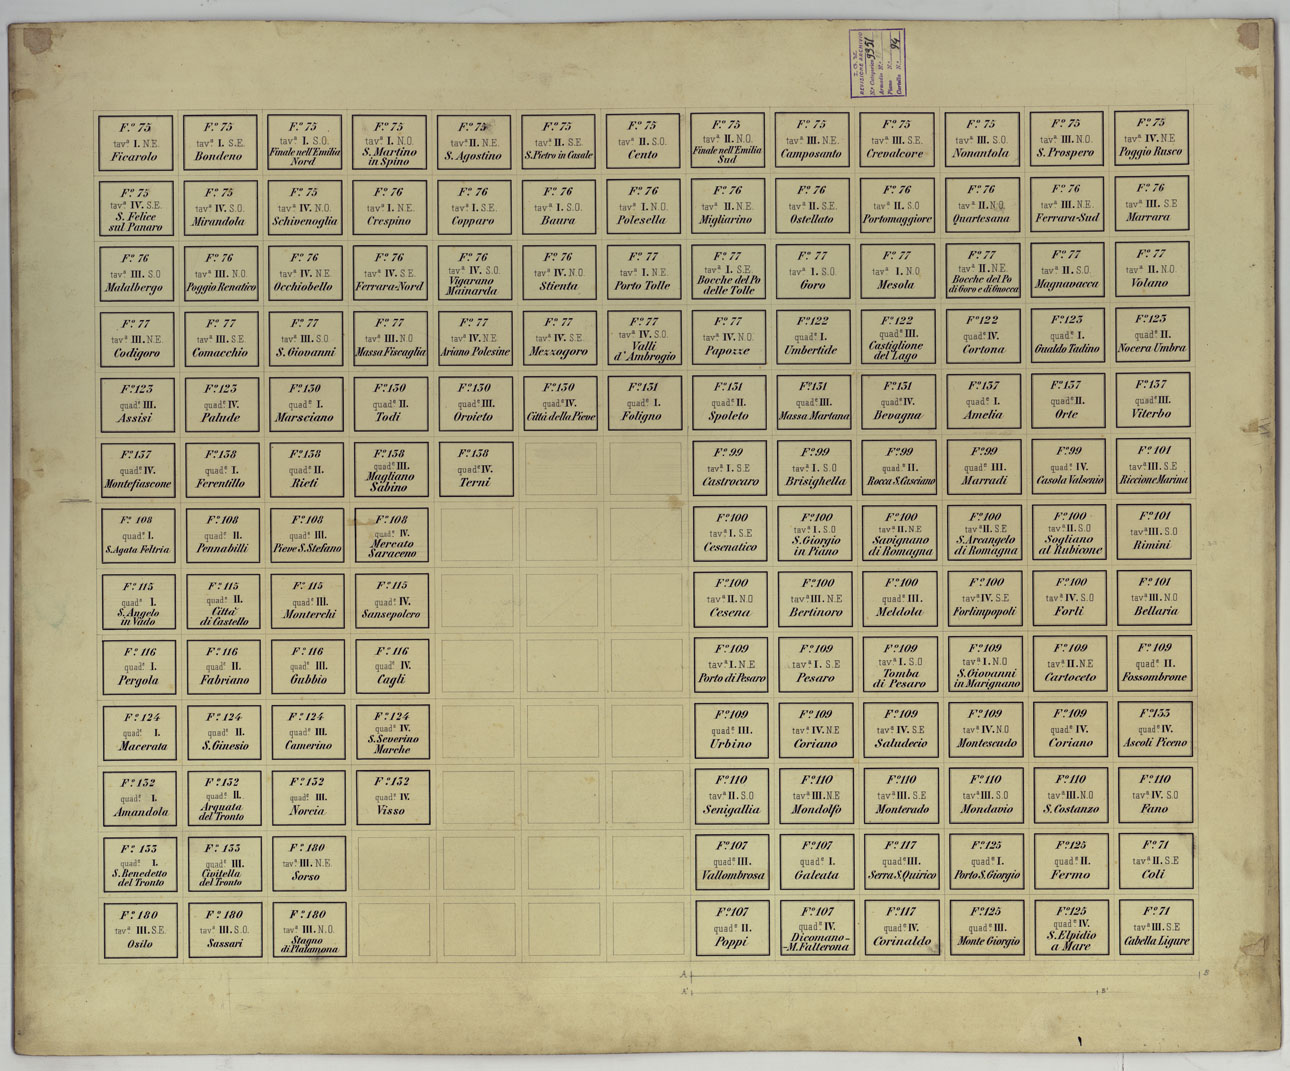 I. G. M.
REVISIONE ARCHIVIO
N.º Categorico 9351
Armadio N.º
Piano N.º
Cartella N.º 94
F.º 75
tav.ª I. N.E.
Ficarolo
F.º 75
tav.ª I. S.E.
Bondeno
F.º 75
tav.ª I. S.O.
Finale nell'Emilia
Nord
F.º 75
tav.ª I. N.O.
S. Martino
in Spino
F.º 75
tav.ª II. N.E.
S. Agostino
F.º 75
tav.ª II. S.E.
S. Pietro in Casale
F.º 75
tav.ª II. S.O.
Cento
F.º 75
tav.ª II. N.O.
Finale nell'Emilia
Sud
F.º 75
tav.ª III. N.E.
Camposanto
F.º 75
tav.ª III. S.E.
Crevalcore
F.º 75
tav.ª III. S.O.
Nonantola
F.º 75
tav.ª III. N.O.
S. Prospero
F.º 75
tav.ª IV. N.E.
Poggio Rusco
F.º 75
tav.ª IV. S.E.
S. Felice
sul Panaro
F.º 75
tav.ª IV. S.O.
Mirandola
F.º 75
tav.ª IV. N.O.
Schivenoglia
F.º 76
tav.ª I. N.E.
Crespino
F.º 76
tav.ª I. S.E.
Copparo
F.º 76
tav.ª I. S.O.
Baura
F.º 76
tav.ª I. N.O.
Polesella
F.º 76
tav.ª II. N.E.
Migliarino
F.º 76
tav.ª II. S.E.
Ostellato
F.º 76
tav.ª II. S.O
Portomaggiore
F.º 76
tav.ª II. N.O.
Quartesana
F.º 76
tav.ª III. N.E.
Ferrara-Sud
F.º 76
tav.ª III. S.E
Marrara
F.º 76
tav.ª III. S.O
Malalbergo
F.º 76
tav.ª III. N.O.
Poggio Renatico
F.º 76
tav.ª IV. N.E.
Occhiobello
F.º 76
tav.ª IV. S.E.
Ferrara-Nord
F.º 76
tav.ª IV. S.O.
Vigarano
Mainarda
F.º 76
tav.ª IV. N.O.
Stienta
F.º 77
tav.ª I. N.E.
Porto Tolle
F.º 77
tav.ª I. S.E.
Bocche del Po
delle Tolle
F.º 77
tav.ª I. S.O.
Goro
F.º 77
tav.ª I. N.O.
Mesola
F.º 77
tav.ª II. N.E.
Bocche del Po
di Goro e di Gnocca
F.º 77
tav.ª II. S.O.
Magnavacca
F.º 77
tav.ª II. N.O.
Volano
F.º 77
tav.ª III. N.E.
Codigoro
F.º 77
tav.ª III. S.E
Comacchio
F.º 77
tav.ª III. S.O.
S. Giovanni
F.º 77
tav.ª III. N.O
Massa Fiscaglia
F.º 77
tav.ª IV. N.E
Ariano Polesine
F.º 77
tav.ª IV. S.E.
Mezzogoro
F.º 77
tav.ª IV. S.O.
Valli
d'Ambrogio
F.º 77
tav.ª IV. N.O.
Papozze
F.º 122
quad.e I.
Umbertide
F.º 122
quad.e III.
Castiglione
del Lago
F.º 122
quad.e IV.
Cortona
F.º 123
quad.e I.
Gualdo Tadino
F.º 123
quad.e II.
Nocera Umbra
F.º 123
quad.e III.
Assisi
F.º 123
quad.e IV.
Palude
F.º 130
quad.e I.
Marsciano
F.º 130
quad.e II.
Todi
F.º 130
quad.e III.
Orvieto
F.º 130
quad.e IV.
Città della Pieve
F.º 131
quad.e I.
Foligno
F.º 131
quad.e II.
Spoleto
F.º 131
quad.e III.
Massa Martana
F.º 131
quad.e IV.
Bevagna
F.º 137
quad.e I.
Amelia
F.º 137
quad.e II.
Orte
F.º 137
quad.e III.
Viterbo
F.º 137
quad.e IV.
Montefiascone
F.º 138
quad.e I.
Ferentillo
F.º 138
quad.e II.
Rieti
F.º 138
quad.e III.
Magliano
Sabino
F.º 138
quad.e IV.
Terni
F.º 99
tav.ª I. S.E
Castrocaro
F.º 99
tav.ª I. S.O
Brisighella
F.º 99
quad.e II.
Rocca S. Casciano
F.º 99
quad.e III.
Marradi
F.º 99
quad.e IV.
Casola Valsenio
F.º 101
tav.ª III. S.E
Riccione Marina
F.º 108
quad.e I.
S. Agata Feltria
F.º 108
quad.e II.
Pennabilli
F.º 108
quad.e III.
Pieve S. Stefano
F.º 108
quad.e IV.
Mercato
Saraceno
F.º 100
tav.ª I. S.E
Cesenatico
F.º 100
tav.ª I. S.O
S. Giorgio
in Piano
F.º 100
tav.ª II. N.E
Savignano
di Romagna
F.º 100
tav.ª II. S.E
S. Arcangelo
di Romagna
F.º 100
tav.ª II. S.O
Sogliano
al Rubicone
F.º 101
tav.ª III. S.O
Rimini
F.º 115
quad.e I.
S. Angelo
in Vado
F.º 115
quad.e II.
Città
di Castello
F.º 115
quad.e III.
Monterchi
F.º 115
quad.e IV.
Sansepolcro
F.º 100
tav.ª II. N.O
Cesena
F.º 100
tav.ª III. N.E
Bertinoro
F.º 100
quad.e III.
Meldola
F.º 100
tav.ª IV. S.E
Forlimpopoli
F.º 100
tav.ª IV. S.O
Forlì
F.º 101
tav.ª III. N.O
Bellaria
F.º 116
quad.e I.
Pergola
F.º 116
quad.e II.
Fabriano
F.º 116
quad.e III.
Gubbio
F.º 116
quad.e IV.
Cagli
F.º 109
tav.ª I. N.E
Porto di Pesaro
F.º 109
tav.ª I. S.E
Pesaro
F.º 109
tav.ª I. S.O
Tomba
di Pesaro
F.º 109
tav.ª I. N.O
S. Giovanni
in Marignano
F.º 109
tav.ª II. N.E
Cartoceto
F.º 109
quad.e II.
Fossombrone
F.º 124
quad.e I.
Macerata
F.º 124
quad.e II.
S. Ginesio
F.º 124
quad.e III.
Camerino
F.º 124
quad.e IV.
S. Severino
Marche
F.º 109
quad.e III.
Urbino
F.º 109
tav.ª IV. N.E
Coriano
F.º 109
tav.ª IV. S.E
Saludecio
F.º 109
tav.ª IV. N.O
Montescudo
F.º 109
quad.e IV.
Coriano
F.º 133
quad.e IV.
Ascoli Piceno
F.º 132
quad.e I.
Amandola
F.º 132
quad.e II.
Arquata
del Tronto
F.º 132
quad.e III.
Norcia
F.º 132
quad.e IV.
Visso
F.º 110
tav.ª II. S.O
Senigallia
F.º 110
tav.ª III. N.E
Mondolfo
F.º 110
tav.ª III. S.E
Monterado
F.º 110
tav.ª III. S.O
Mondavio
F.º 110
tav.ª III. N.O
S. Costanzo
F.º 110
tav.ª IV. S.O
Fano
F.º 133
quad.e I.
S. Benedetto
del Tronto
F.º 133
quad.e III.
Civitella
del Tronto
F.º 180
tav.ª III. N.E.
Sorso
F.º 107
quad.e III.
Vallombrosa
F.º 107
quad.e I.
Galeata
F.º 117
quad.e III.
Serra S. Quirico
F.º 125
quad.e I.
Porto S. Giorgio
F.º 125
quad.e II.
Fermo
F.º 71
tav.ª II. S.E
Coli
F.º 180
tav.ª III. S.E.
Osilo
F.º 180
tav.ª III. S.O.
Sassari
F.º 180
tav.ª III. N.O.
Stagno
di Platamona
F.º 107
quad.e II.
Poppi
F.º 107
quad.e IV.
Dicomano-
-M. Falterona
F.º 117
quad.e IV.
Corinaldo
F.º 125
quad.e III.
Monte Giorgio
F.º 125
quad.e IV.
S. Elpidio
a Mare
F.º 71
tav.ª III. S.E
Cabella Ligure
A B
A' B'